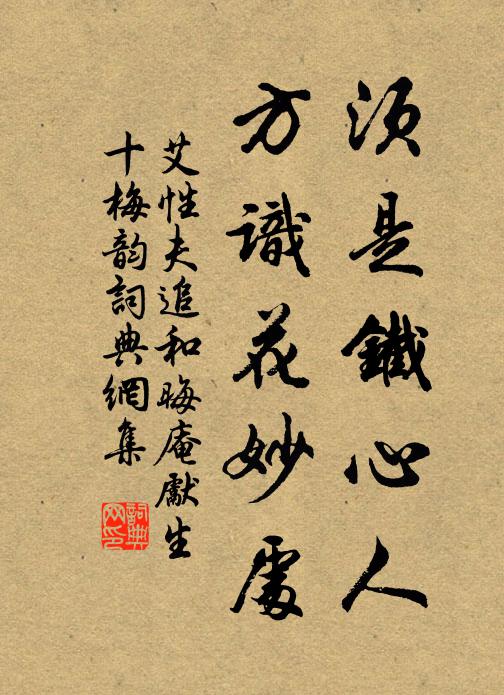 須是鐵心人
方識花妙處
艾性夫追和晦庵獻生
十梅韵詞典網集
詞典
网印